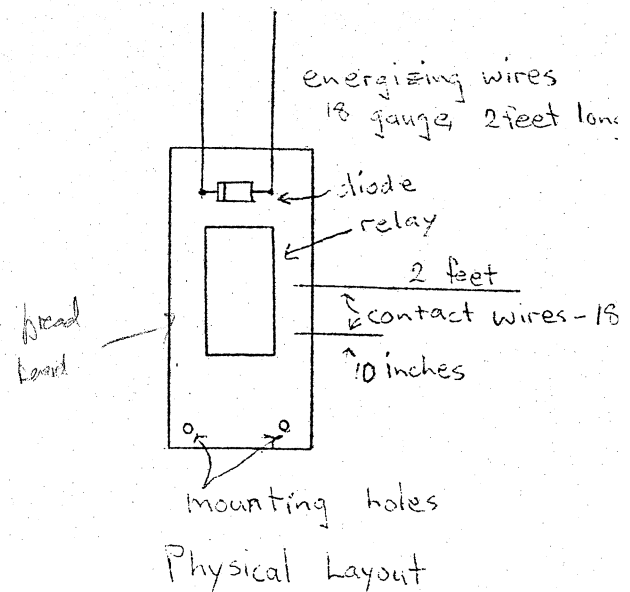 energizing wires
18 gauge, 2 feet long
diode
relay
2 feet
contact wires - 18
10 inches
bread
board
mounting holes
Physical Layout